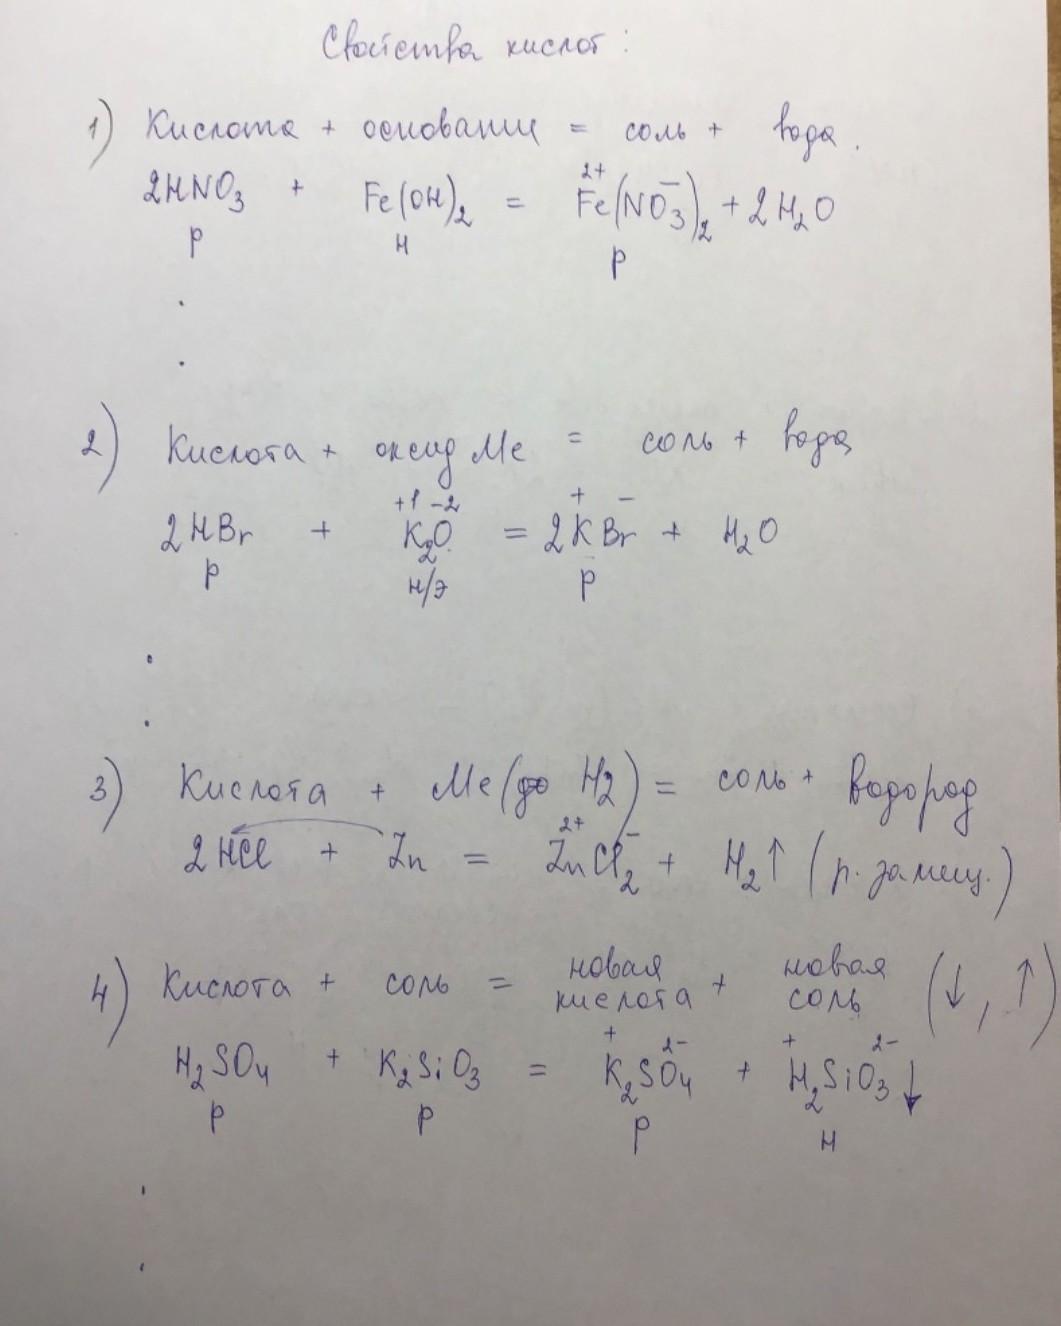 Свойства кислот:
1) Кислота + основание = соль + вода.
2HNO₃ + Fe(OH)₂ = Fe²⁺(NO₃⁻)₂ + 2H₂O
р н р
2) Кислота + оксид Ме = соль + вода
+1 -2 + -
2HBr + K₂O = 2KBr + H₂O
р н/э р
3) Кислота + Ме(до H₂) = соль + водород
2+ -
2HCl + Zn = ZnCl₂ + H₂↑ (р. замещ.)
4) Кислота + соль = новая кислота + новая соль (↓, ↑)
+ 2- + 2-
H₂SO₄ + K₂SiO₃ = K₂SO₄ + H₂SiO₃↓
р р р н